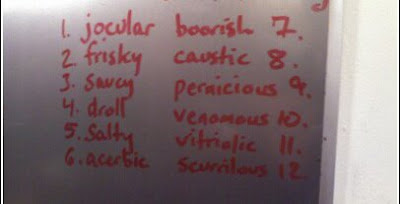 1. jocular boorish 7.
2. frisky caustic 8.
3. saucy pernicious 9.
4. droll venomous 10.
5. salty vitriolic 11.
6. acerbic scurrilous 12.